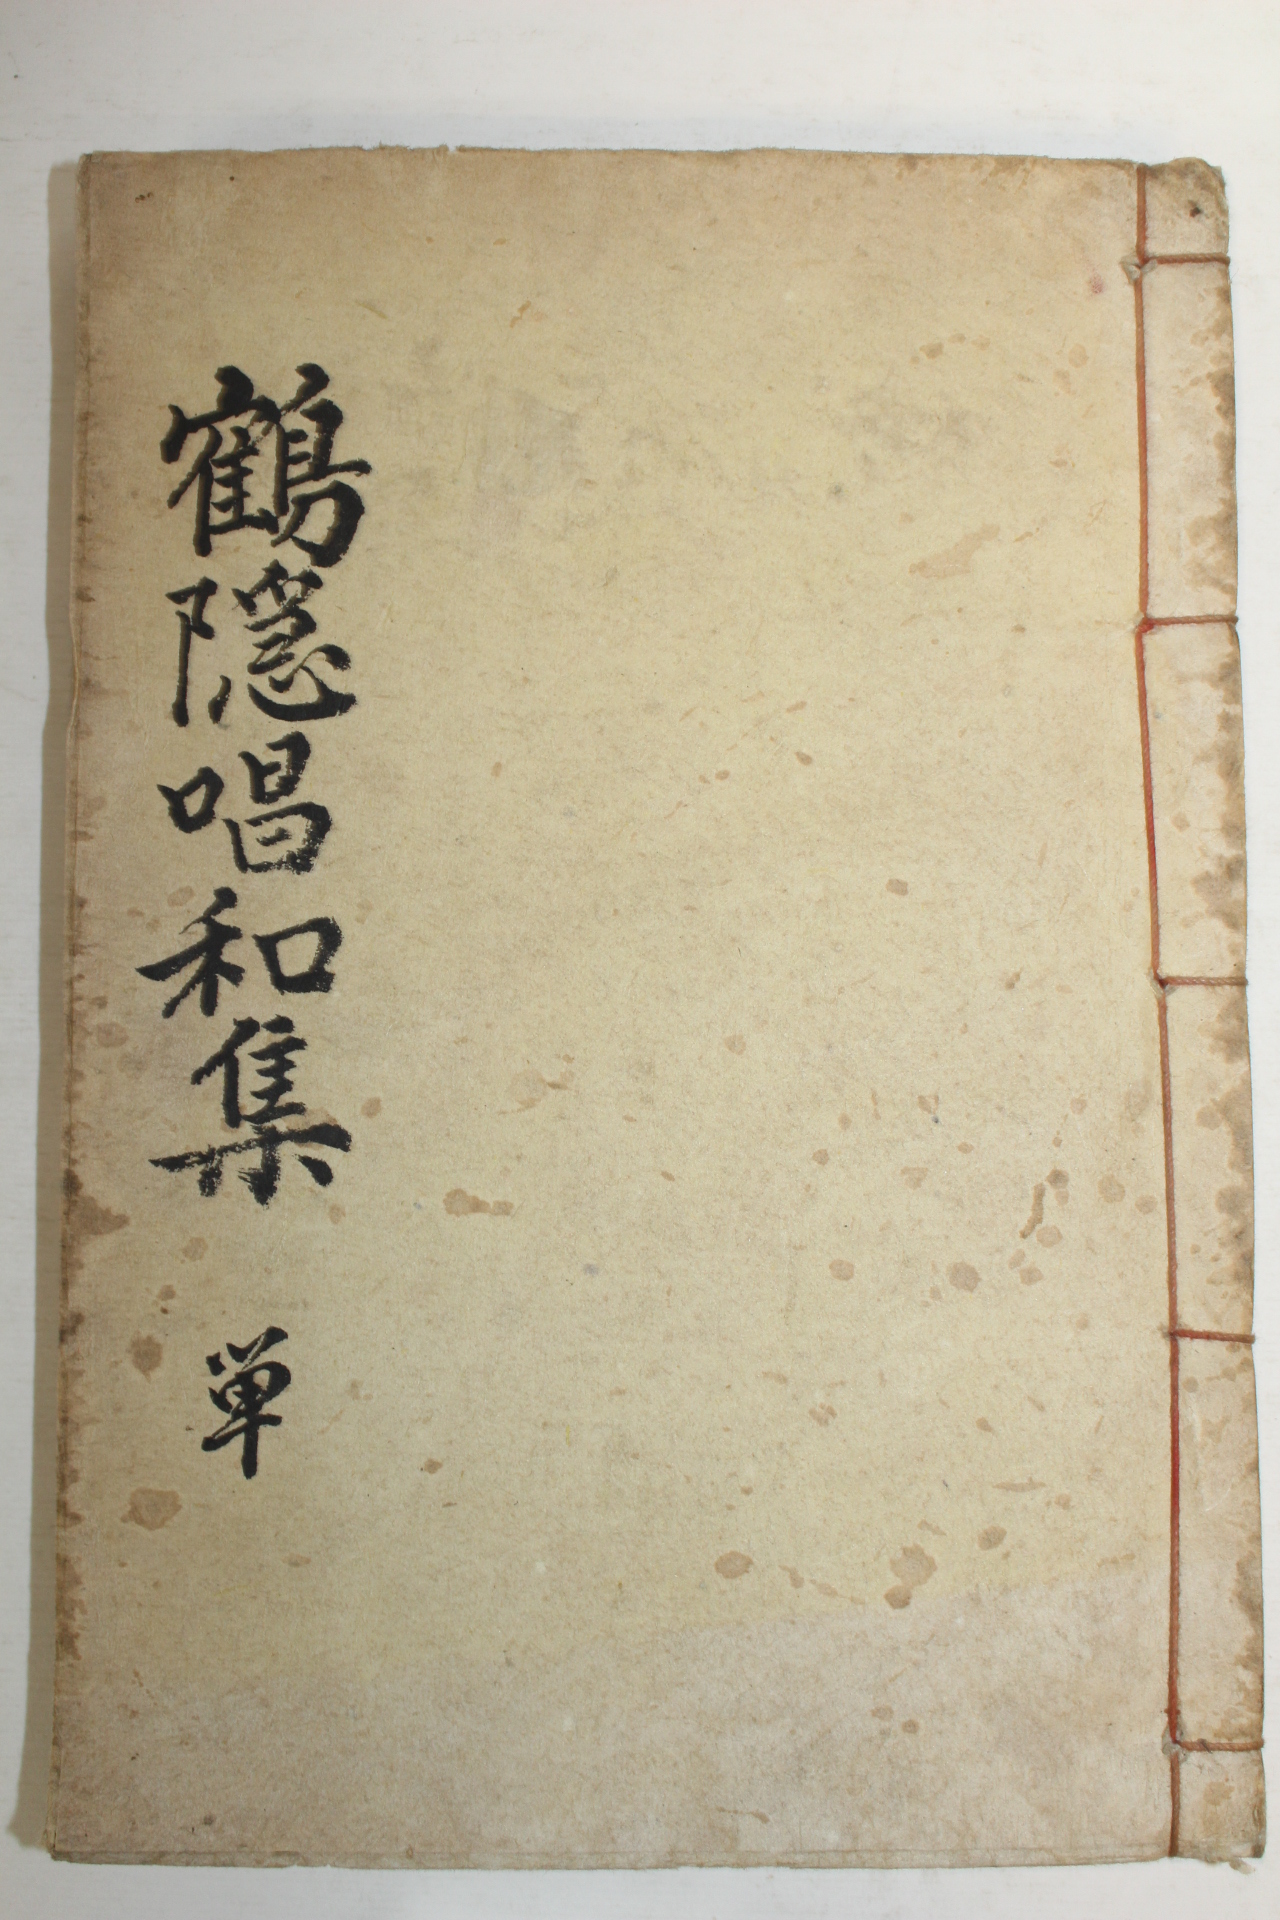 鶴隱唱和集 單